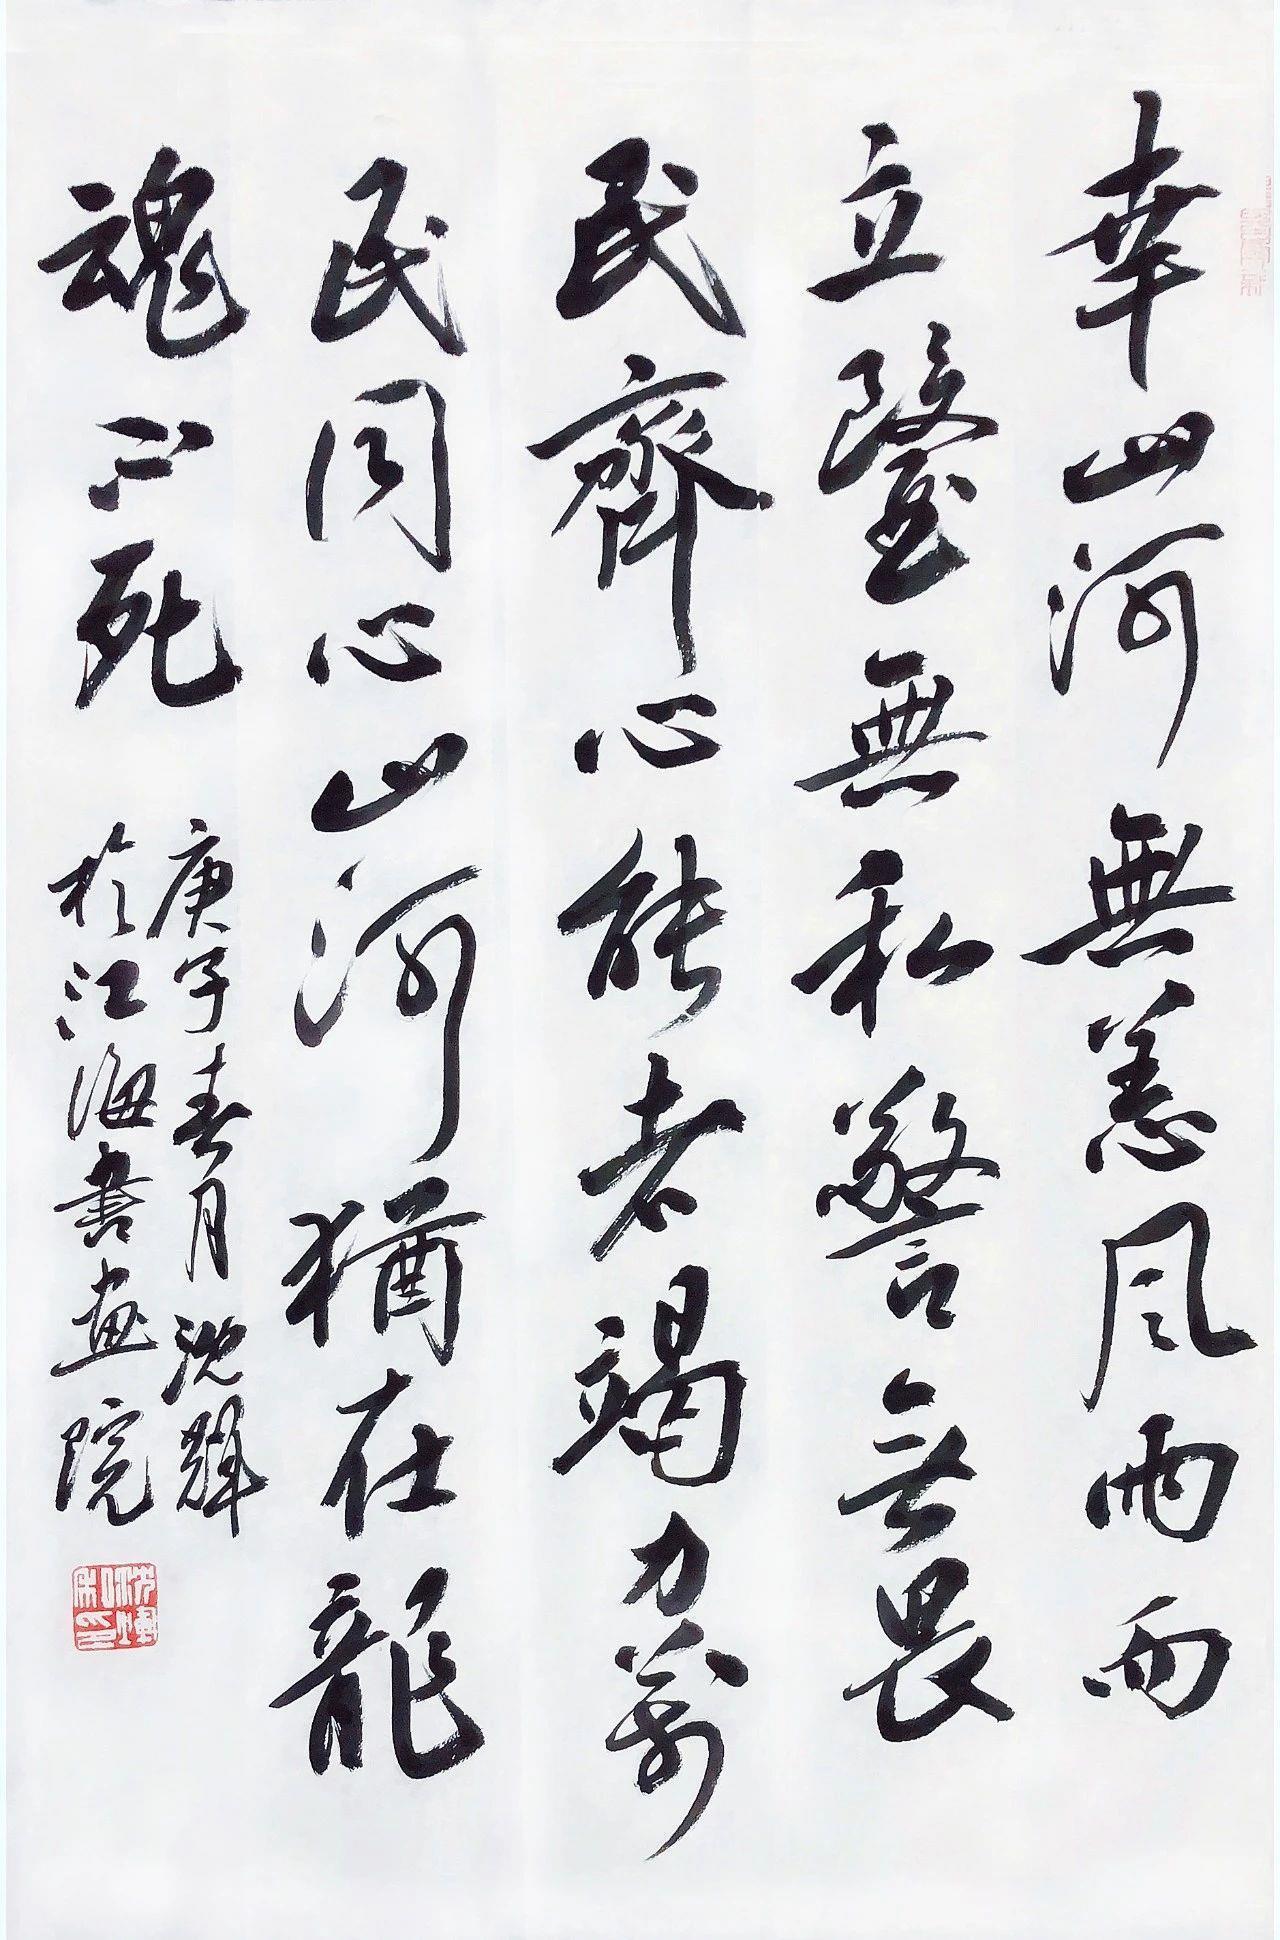 幸山河無恙風雨而
立醫無私警無畏
民齊心能者竭力萬
民同心山河猶在龍
魂不死
庚子春月沈輝
於江海書画院